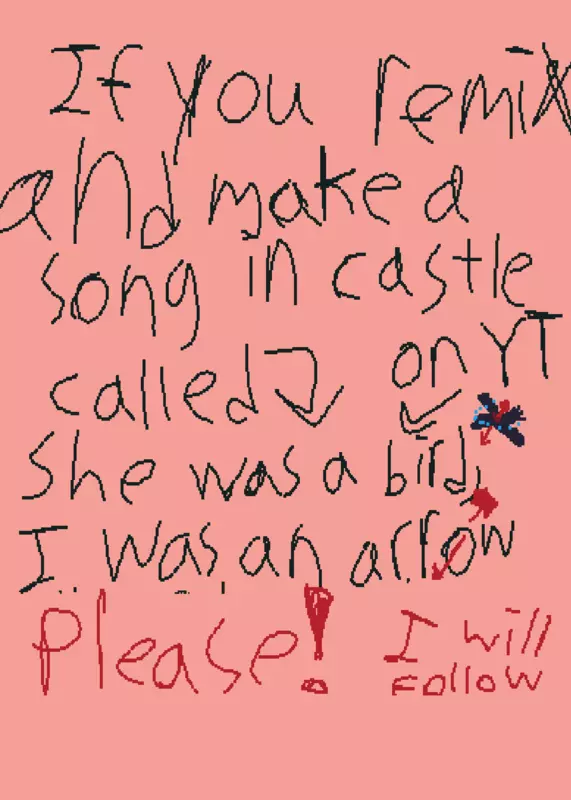 If you remix
and make a
song in castle
called on YT
She was a bird,
I was an arrow
Please! I will
Follow